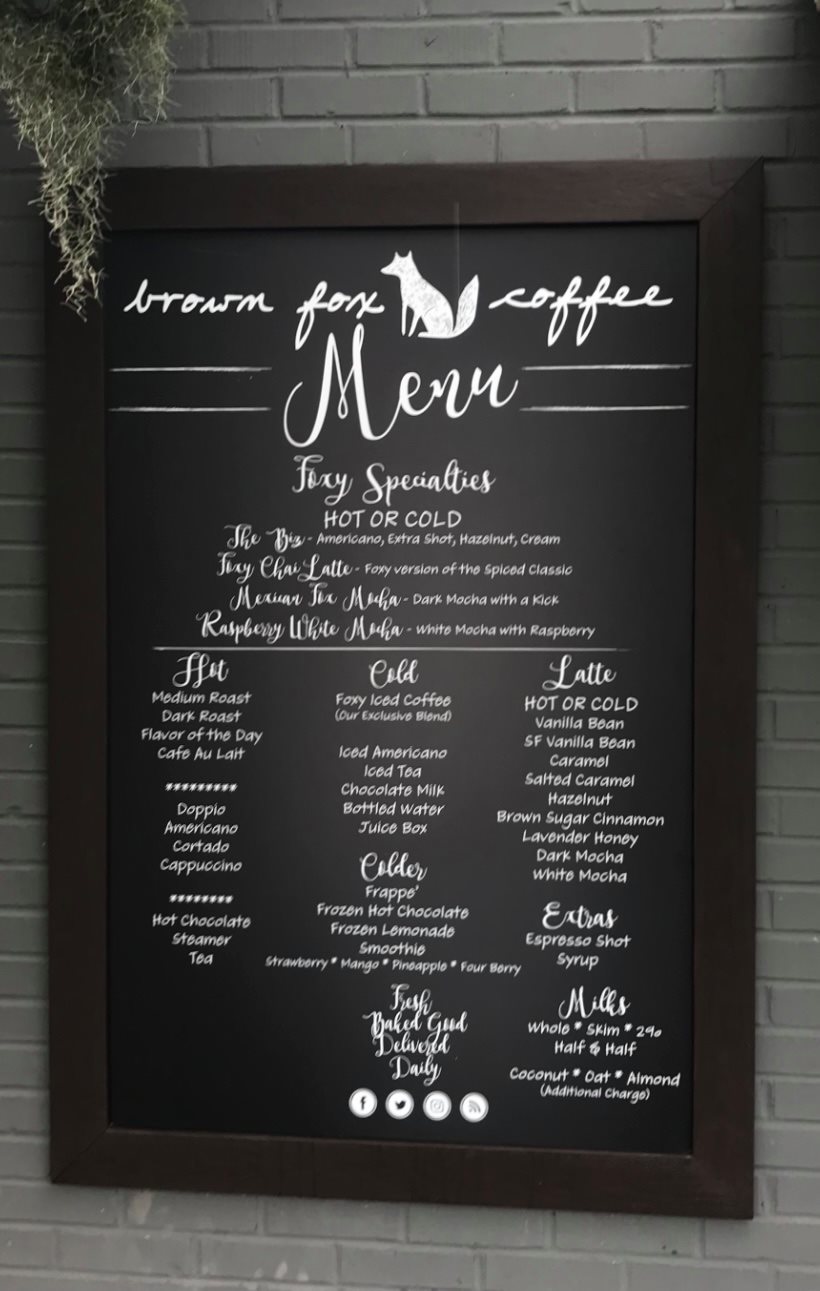 brown fox coffee
Menu
Foxy Specialties
HOT OR COLD
The Biz - Americano, Extra Shot, Hazelnut, Cream
Foxy Chai Latte - Foxy version of the Spiced Classic
Mexican Fox Mocha - Dark Mocha with a Kick
Raspberry White Mocha - White Mocha with Raspberry
Hot
Medium Roast
Dark Roast
Flavor of the Day
Cafe Au Lait
*********
Doppio
Americano
Cortado
Cappuccino
********
Hot Chocolate
Steamer
Tea
Cold
Foxy Iced Coffee
(Our Exclusive Blend)
Iced Americano
Iced Tea
Chocolate Milk
Bottled Water
Juice Box
Colder
Frappe'
Frozen Hot Chocolate
Frozen Lemonade
Smoothie
Strawberry * Mango * Pineapple * Four Berry
Fresh
Baked Good
Delivered
Daily
Latte
HOT OR COLD
Vanilla Bean
SF Vanilla Bean
Caramel
Salted Caramel
Hazelnut
Brown Sugar Cinnamon
Lavender Honey
Dark Mocha
White Mocha
Extras
Espresso Shot
Syrup
Milks
Whole * Skim * 2%
Half & Half
Coconut * Oat * Almond
(Additional Charge)